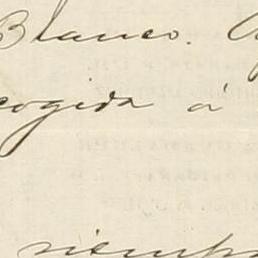 Blanco.
cogida á
siempre